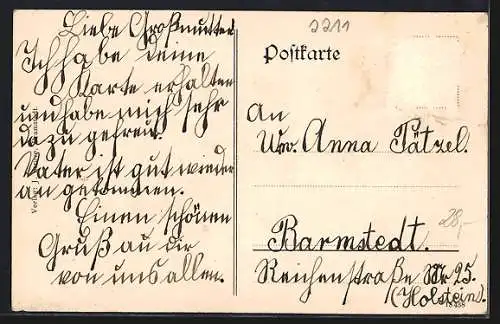 Liebe Großmutter
Ich habe deine
Karte erhalten
und habe mich sehr
dazu gefreut.
Vater ist gut wieder
angekommen.
Einen schönen
Gruß an dir
von uns allen.
2211
Postkarte
An
Ww. Anna Pätzel.
Barmstedt.
Reichenstraße Nr 25.
(Holstein).
28,-